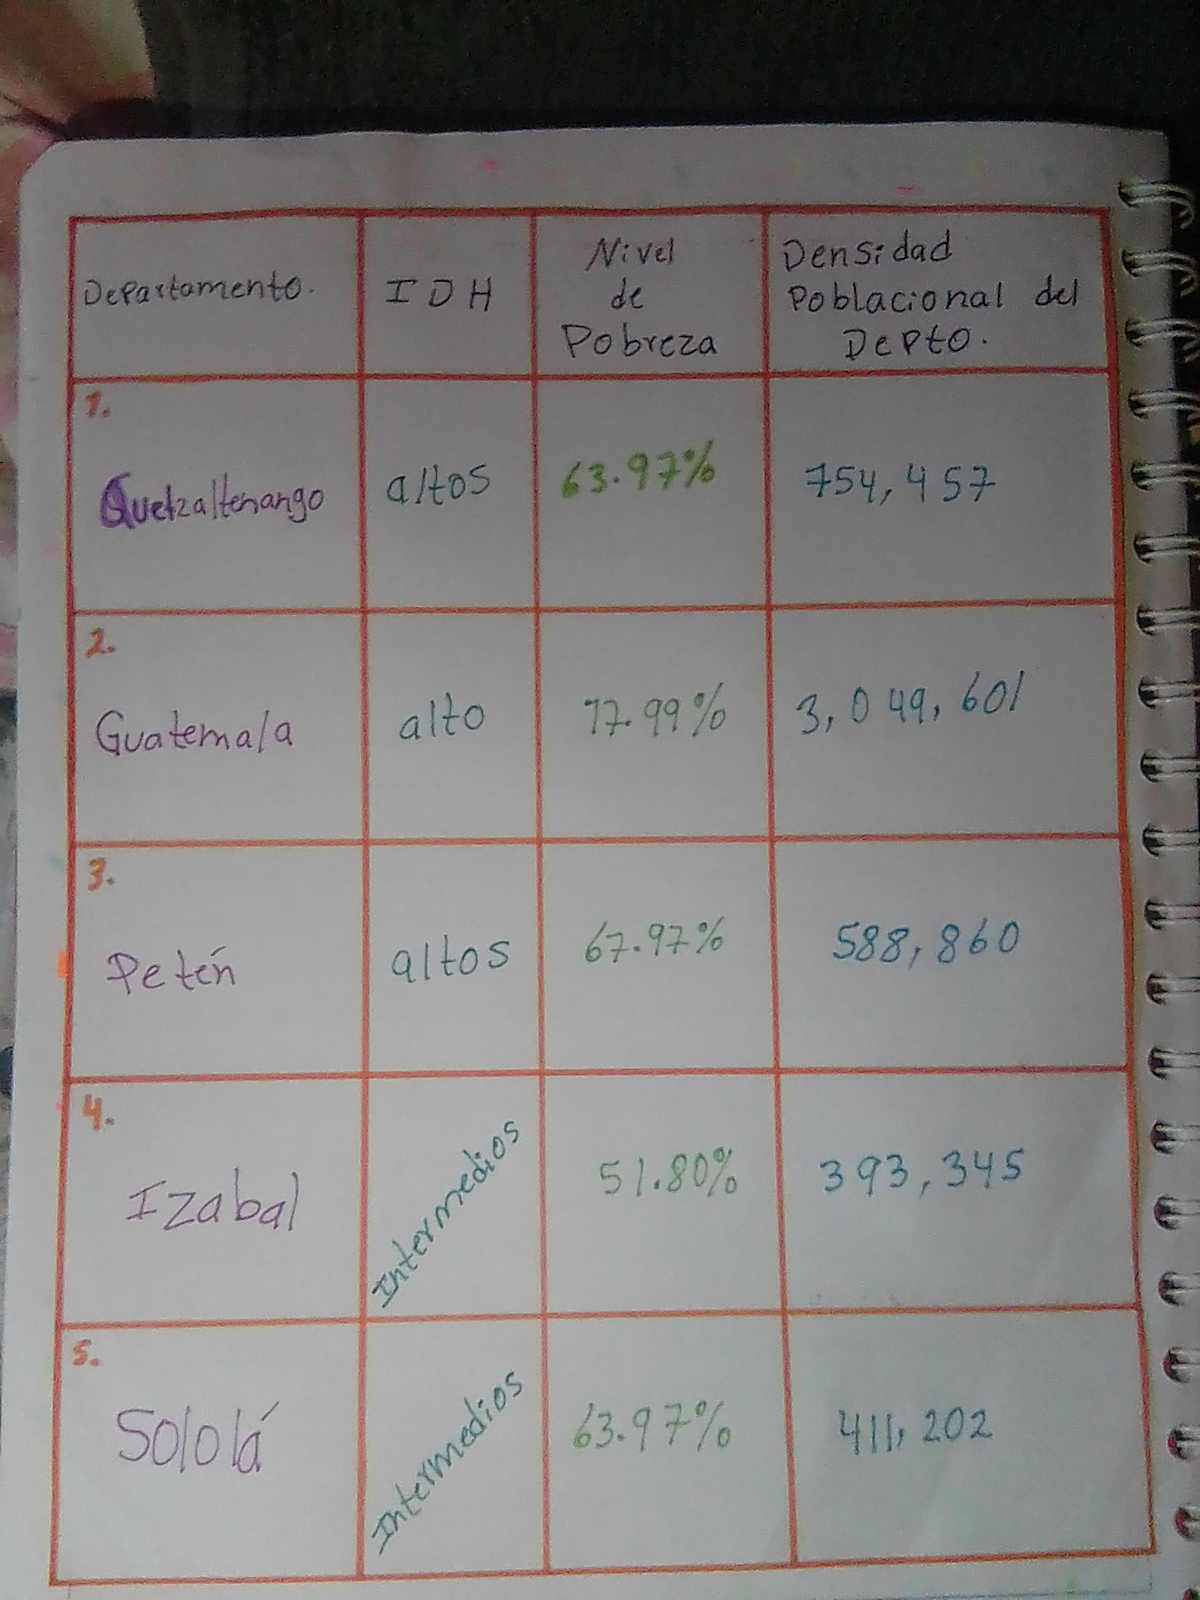 Departamento.
IDH
Nivel
de
Pobreza
Densidad
Poblacional del
Depto.
1.
Quetzaltenango
altos
63.97%
754,457
2.
Guatemala
alto
77.99%
3,049,601
3.
Petén
altos
67.97%
588,860
4.
Izabal
Intermedios
51.80%
393,345
5.
Sololá
Intermedios
63.97%
411,202